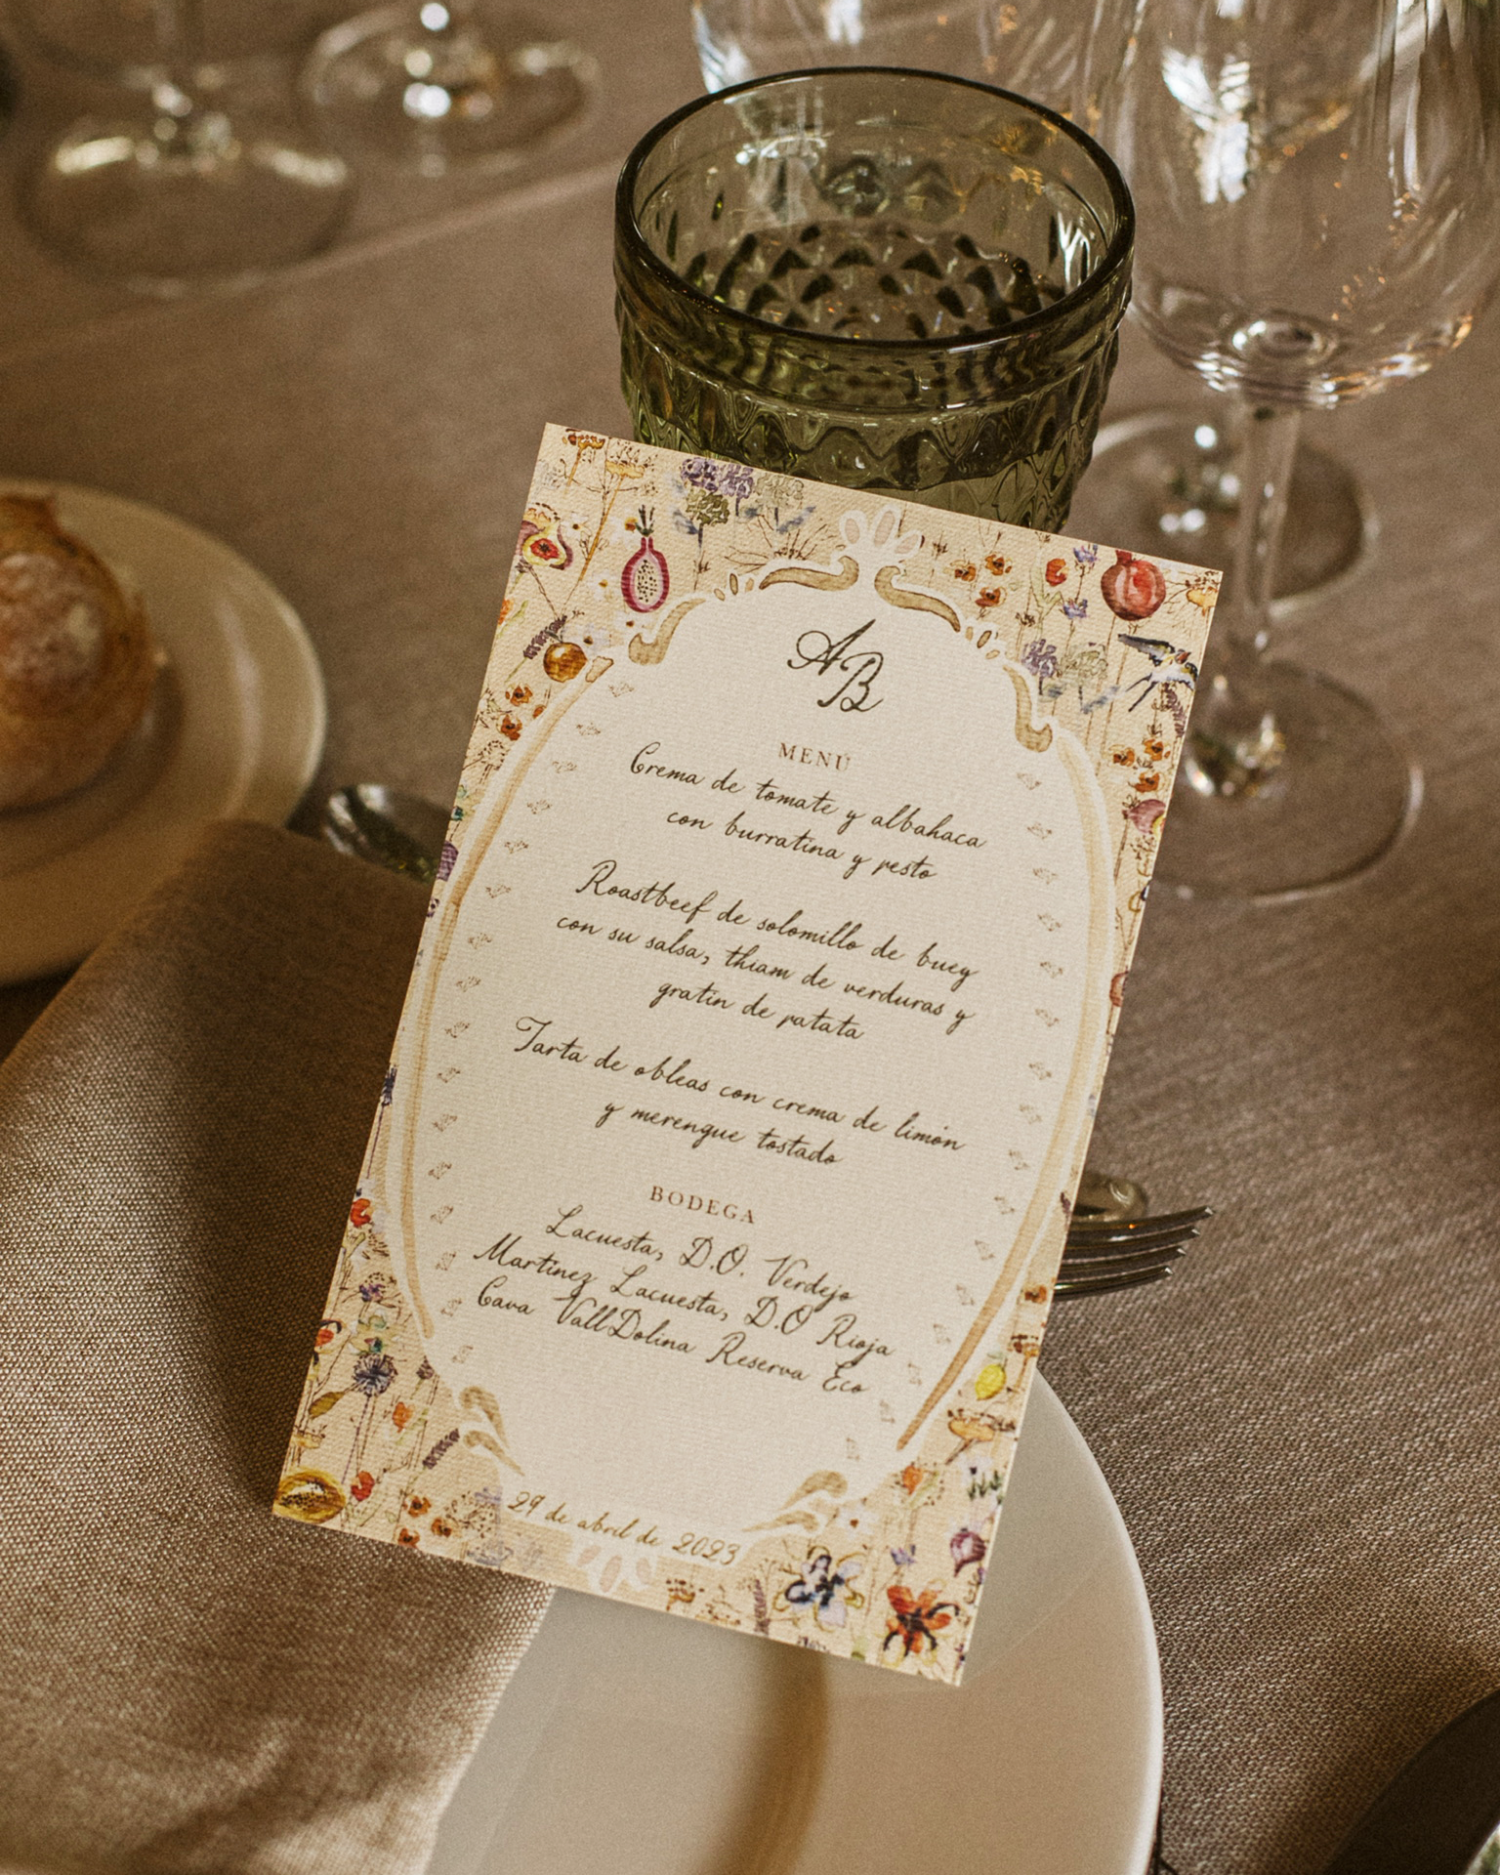 A
B
MENÚ
Crema de tomate y albahaca
con burratina y pesto
Roastbeef de solomillo de buey
con su salsa, thiam de verduras y
gratin de patata
Tarta de obleas con crema de limón
y merengue tostado
BODEGA
Lacuesta, D.O. Verdejo
Martinez Lacuesta, D.O Rioja
Cava VallDolina Reserva Eco
29 de abril de 2023